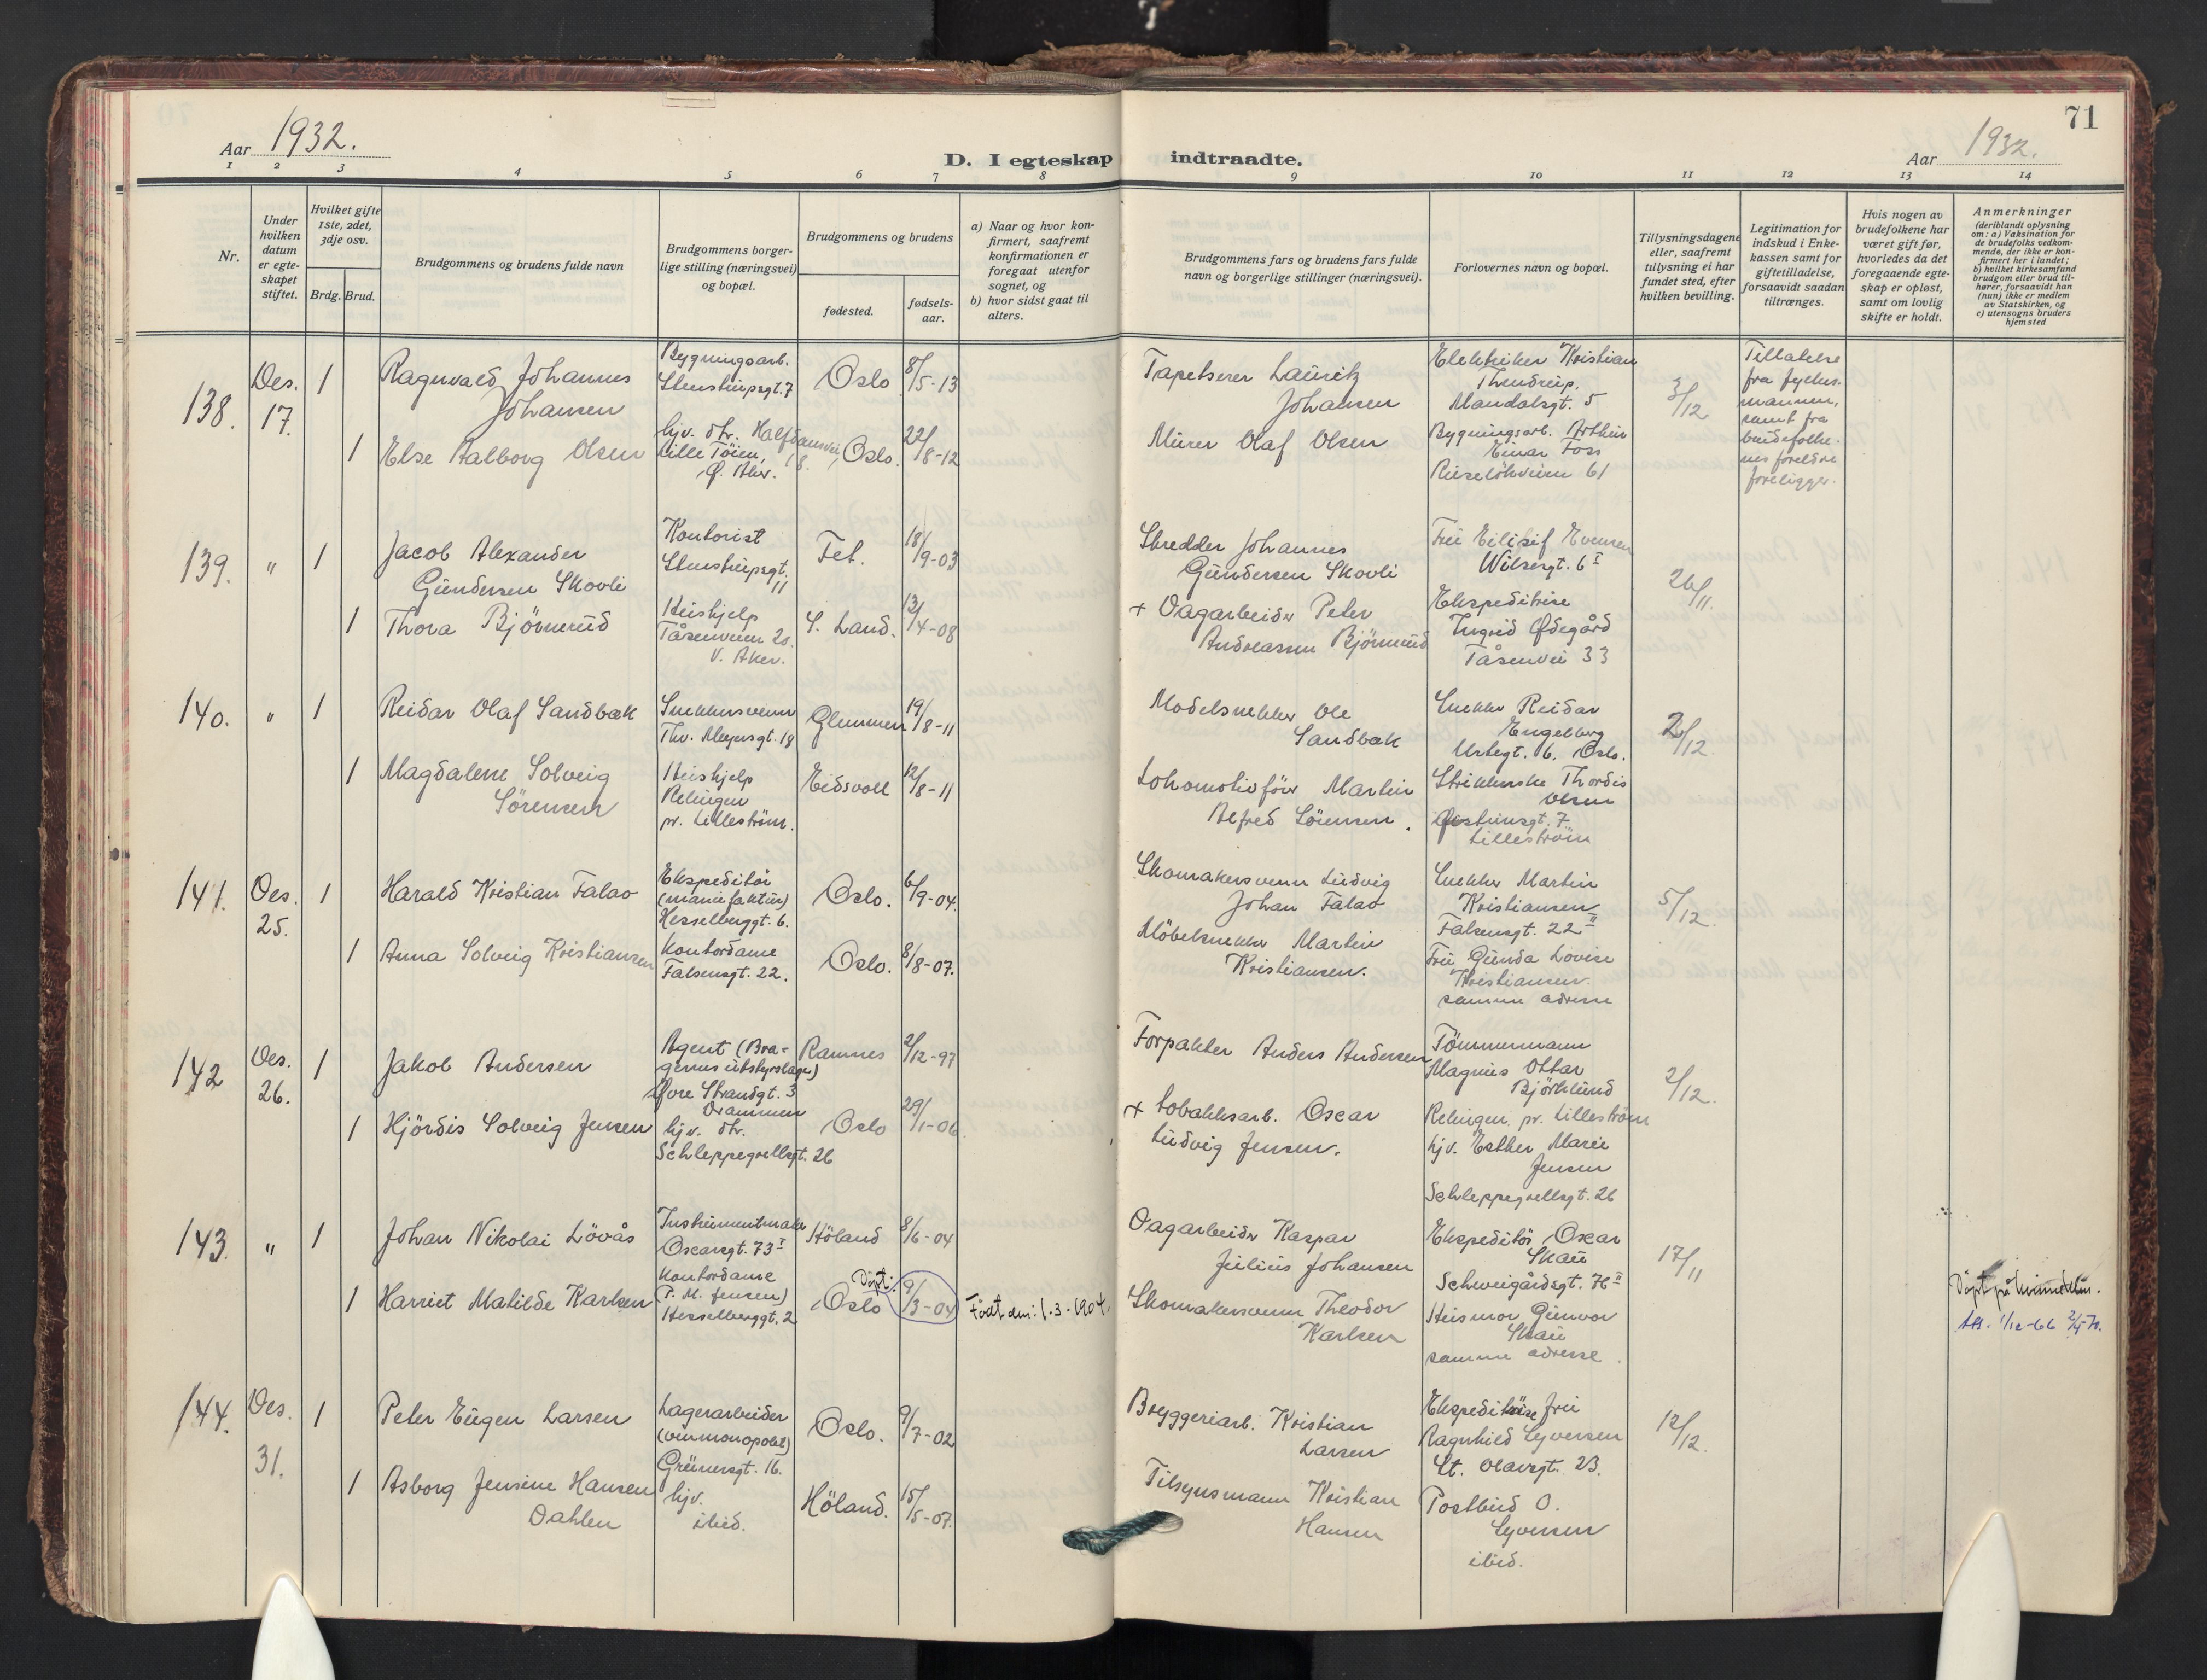 71
Aar 1932.
D. I egteskap indtraadte.
Aar 1932.
1 2 3 4 5 6 7 8 9 10 11 12 13 14
Nr.
Under hvilken datum er egte-skapet stiftet.
Hvilket gifte 1ste, 2det, 3dje osv.
Brdg. Brud.
Brudgommens og brudens fulde navn
Brudgommens borger-lige stilling (næringsvei) og bopæl.
Brudgommens og brudens
fødested.
fødsels-aar.
a) Naar og hvor kon-firmert, saafremt konfirmationen er foregaat utenfor sognet, og
b) hvor sidst gaat til alters.
Brudgommens fars og brudens fars fulde navn og borgerlige stillinger (næringsvei).
Forlovernes navn og bopæl.
Tillysningsdagene eller, saafremt tillysning ei har fundet sted, efter hvilken bevilling.
Legitimation for indskud i Enke-kassen samt for giftetilladelse, forsaavidt saadan tiltrænges.
Hvis nogen av brudefolkene har været gift før, hvorledes da det foregaaende egte-skap er opløst, samt om lovlig skifte er holdt.
Anmerkninger (deriblandt oplysning om: a) Vaksination for de brudefolks vedkom-mende, der ikke er kon-firmert her i landet; b) hvilket kirkesamfund brudgom eller brud til-hører, forsaavidt han (hun) ikke er medlem av Statskirken, og c) utensogns bruders hjemsted
138. Des. 17. 1 Ragnvald Johannes Johansen
Bygningsarb. Stenstrupsgt. 7
Oslo 8/5-13
Tapetserer Lauritz Johansen
Elektriker Kristian Thendrup. Mandalsgt. 5
3/12
Tillatelse fra fylkes-mannen, samt fra brudefolke-nes foreldre foreligger.
1 Else Aalborg Olsen
hjv. dtr. Halfdansvei, 18. Lille Töien, Ø. Aker.
Oslo. 22/8-12
Murer Olaf Olsen
Bygningsarb. Arthur Einar Foss Ruseløkveien 61
139. " 1 Jacob Alexander Gundersen Skovli
Kontorist Stenstrupsgt. 11
Fet. 18/9-03
Skredder Johannes Gundersen Skovli
Fru Eilisif Evensen Wilsesgt. 6 I
26/11.
1 Thora Björnerud
Hushjelp Tåsenveien 20. V. Aker.
S. Land. 13/4-08
+ Dagarbeider Peter Andreassen Björnerud
Ekspeditrise Ingrid Ødegård Tåsenvei 33
140. " 1 Reidar Olaf Sandbæk
Snekkersvenn Thv. Meyersgt. 18
Glemmen 19/8-11
Modelsnekker Ole Sandbæk
Snekker Reidar Engelberg Urtegt. 6. Oslo.
2/12.
1 Magdalene Solveig Sörensen
Hushjelp Relingen pr. Lilleström.
Eidsvoll 12/8-11
Lokomotivförer Martin Alfred Sörensen.
Strikkerske Thordis Olsen
gt. 7 Lilleström
141. Des. 25. 1 Harald Kristian Falao
Ekspeditör (manufaktur) Hesselberggt. 6.
Oslo. 6/9-04.
Skomakersvenn Ludvig Johan Falao
Snekker Martin Kristiansen Falsensgt. 22 II
5/12.
1 Anna Solveig Kristiansen
Kontordame Falsensgt. 22.
Oslo. 8/8-07.
Möbelsnekker Martin Kristiansen.
Fru Gunda Lovise Kristiansen. samme adresse
142 Des. 26. 1 Jakob Andersen
Agent (Bra-gernes utstyrslager) Øvre Strandgt. 3 Drammen
Ramnes 2/12-97
Forpakter Anders Andersen
Tömmermann Magnus Ottar Björklund Relingen. pr. Lilleström
2/12.
1 Hjördis Solveig Jensen
hjv. dtr. Schleppegrellsgt. 26
Oslo 29/1-06.
+ Tobakksarb. Oscar Ludvig Jensen.
hjv. Esther Marie Jensen Schleppegrellsgt. 26
143. " 1 Johan Nikolai Lövås
Instrumentmaker Oscarsgt. 73 I
Höland 8/6-04
Dagarbeider Kaspar Julius Johansen
Ekspeditör Oscar Skau Schweigårdsgt. 76 II
17/11
1 Harriet Matilde Karlsen
Kontordame (P. M. Jensen) Hesselberggt. 2
Oslo Döpt: 9/3-04
Födt den: 1.3.1904.
Skomakersvenn Theodor Karlsen
Husmor Gunvor Skau samme adresse.
Döpt på kvinneklin.
Att. 1/12-66 2/4-70.
144. Des. 31. 1 Peter Eugen Larsen
Lagerarbeider (vinmonopolet) Grünersgt. 16.
Oslo. 9/7-02
Bryggeriarb. Kristian Larsen
Ekspeditrise fru Ragnhild Syversen St. Olavsgt. 23.
12/12.
1 Asborg Jensine Hansen Dahlen
hjv. ibid.
Höland. 15/5-07.
Tilsynsmann Kristian Hansen
Postbud O. Syversen ibid.